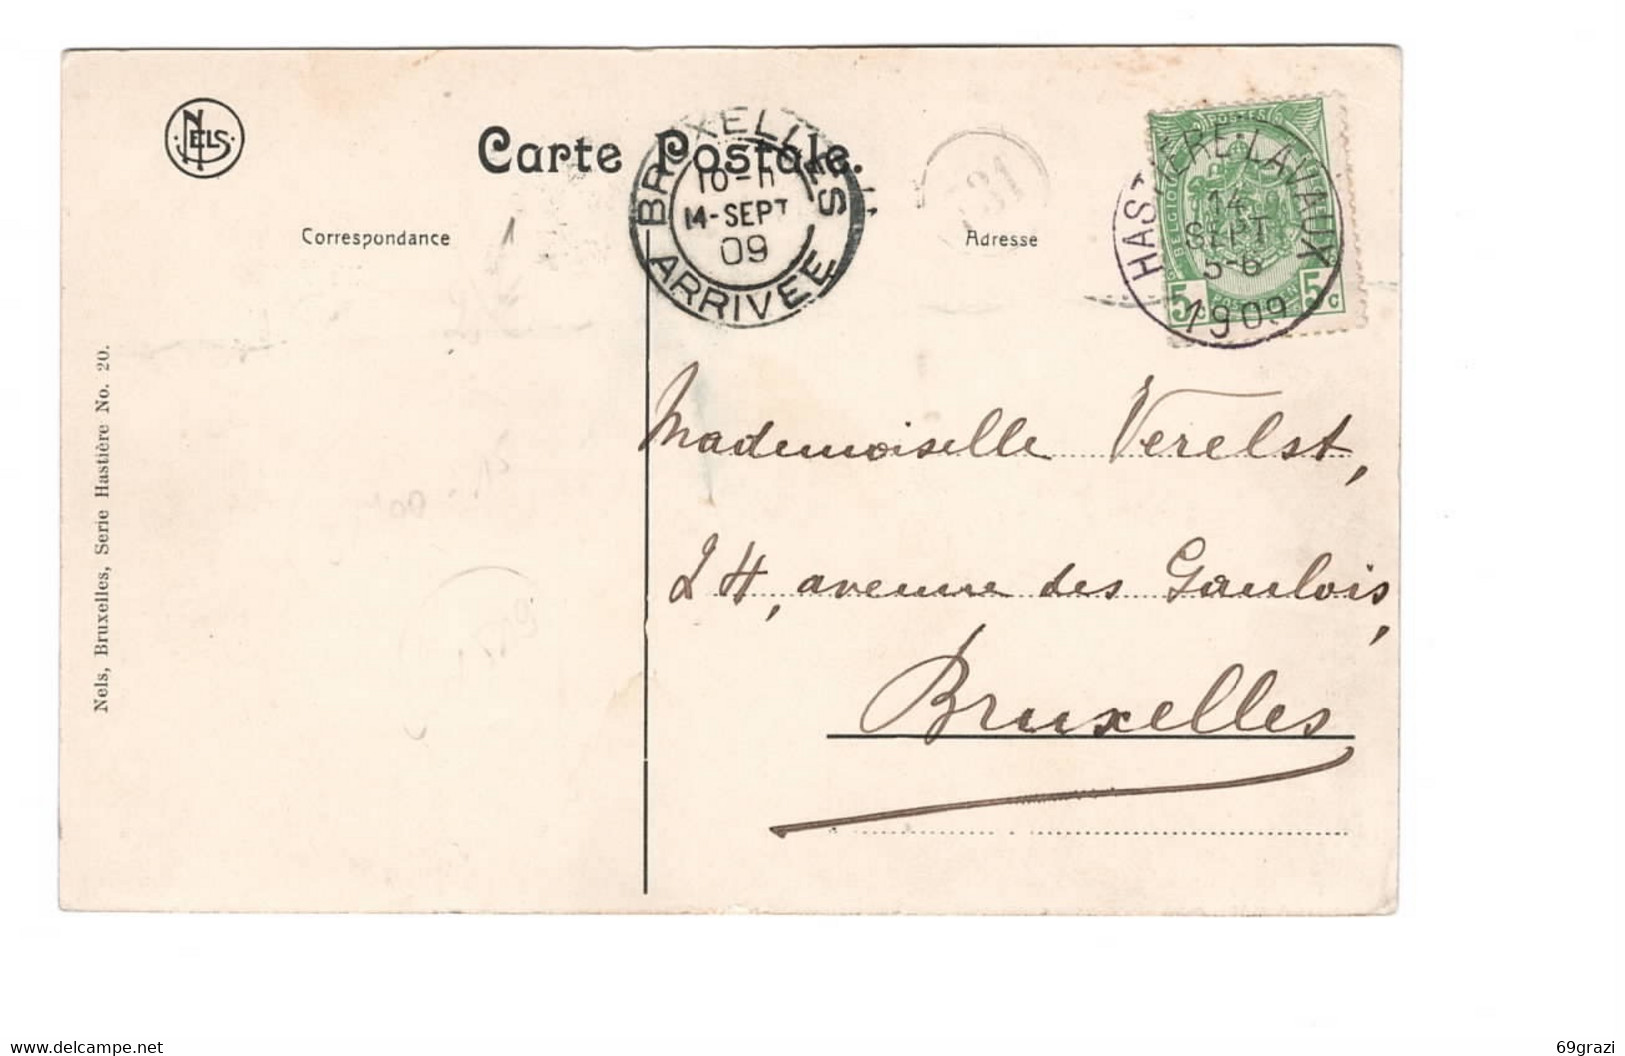 NELS
Carte Postale.
BRUXELLES
10-11
14-SEPT
09
ARRIVEE
HASTIÈRE-LAVAUX
14
SEPT
5-6
1909
POSTES
BELGIQUE
5c 5c
Correspondance
Adresse
Nels, Bruxelles, Serie Hastière No. 20.
Mademoiselle Verelst,
24, avenue des Gaulois,
Bruxelles
www.delcampe.net
69grazi